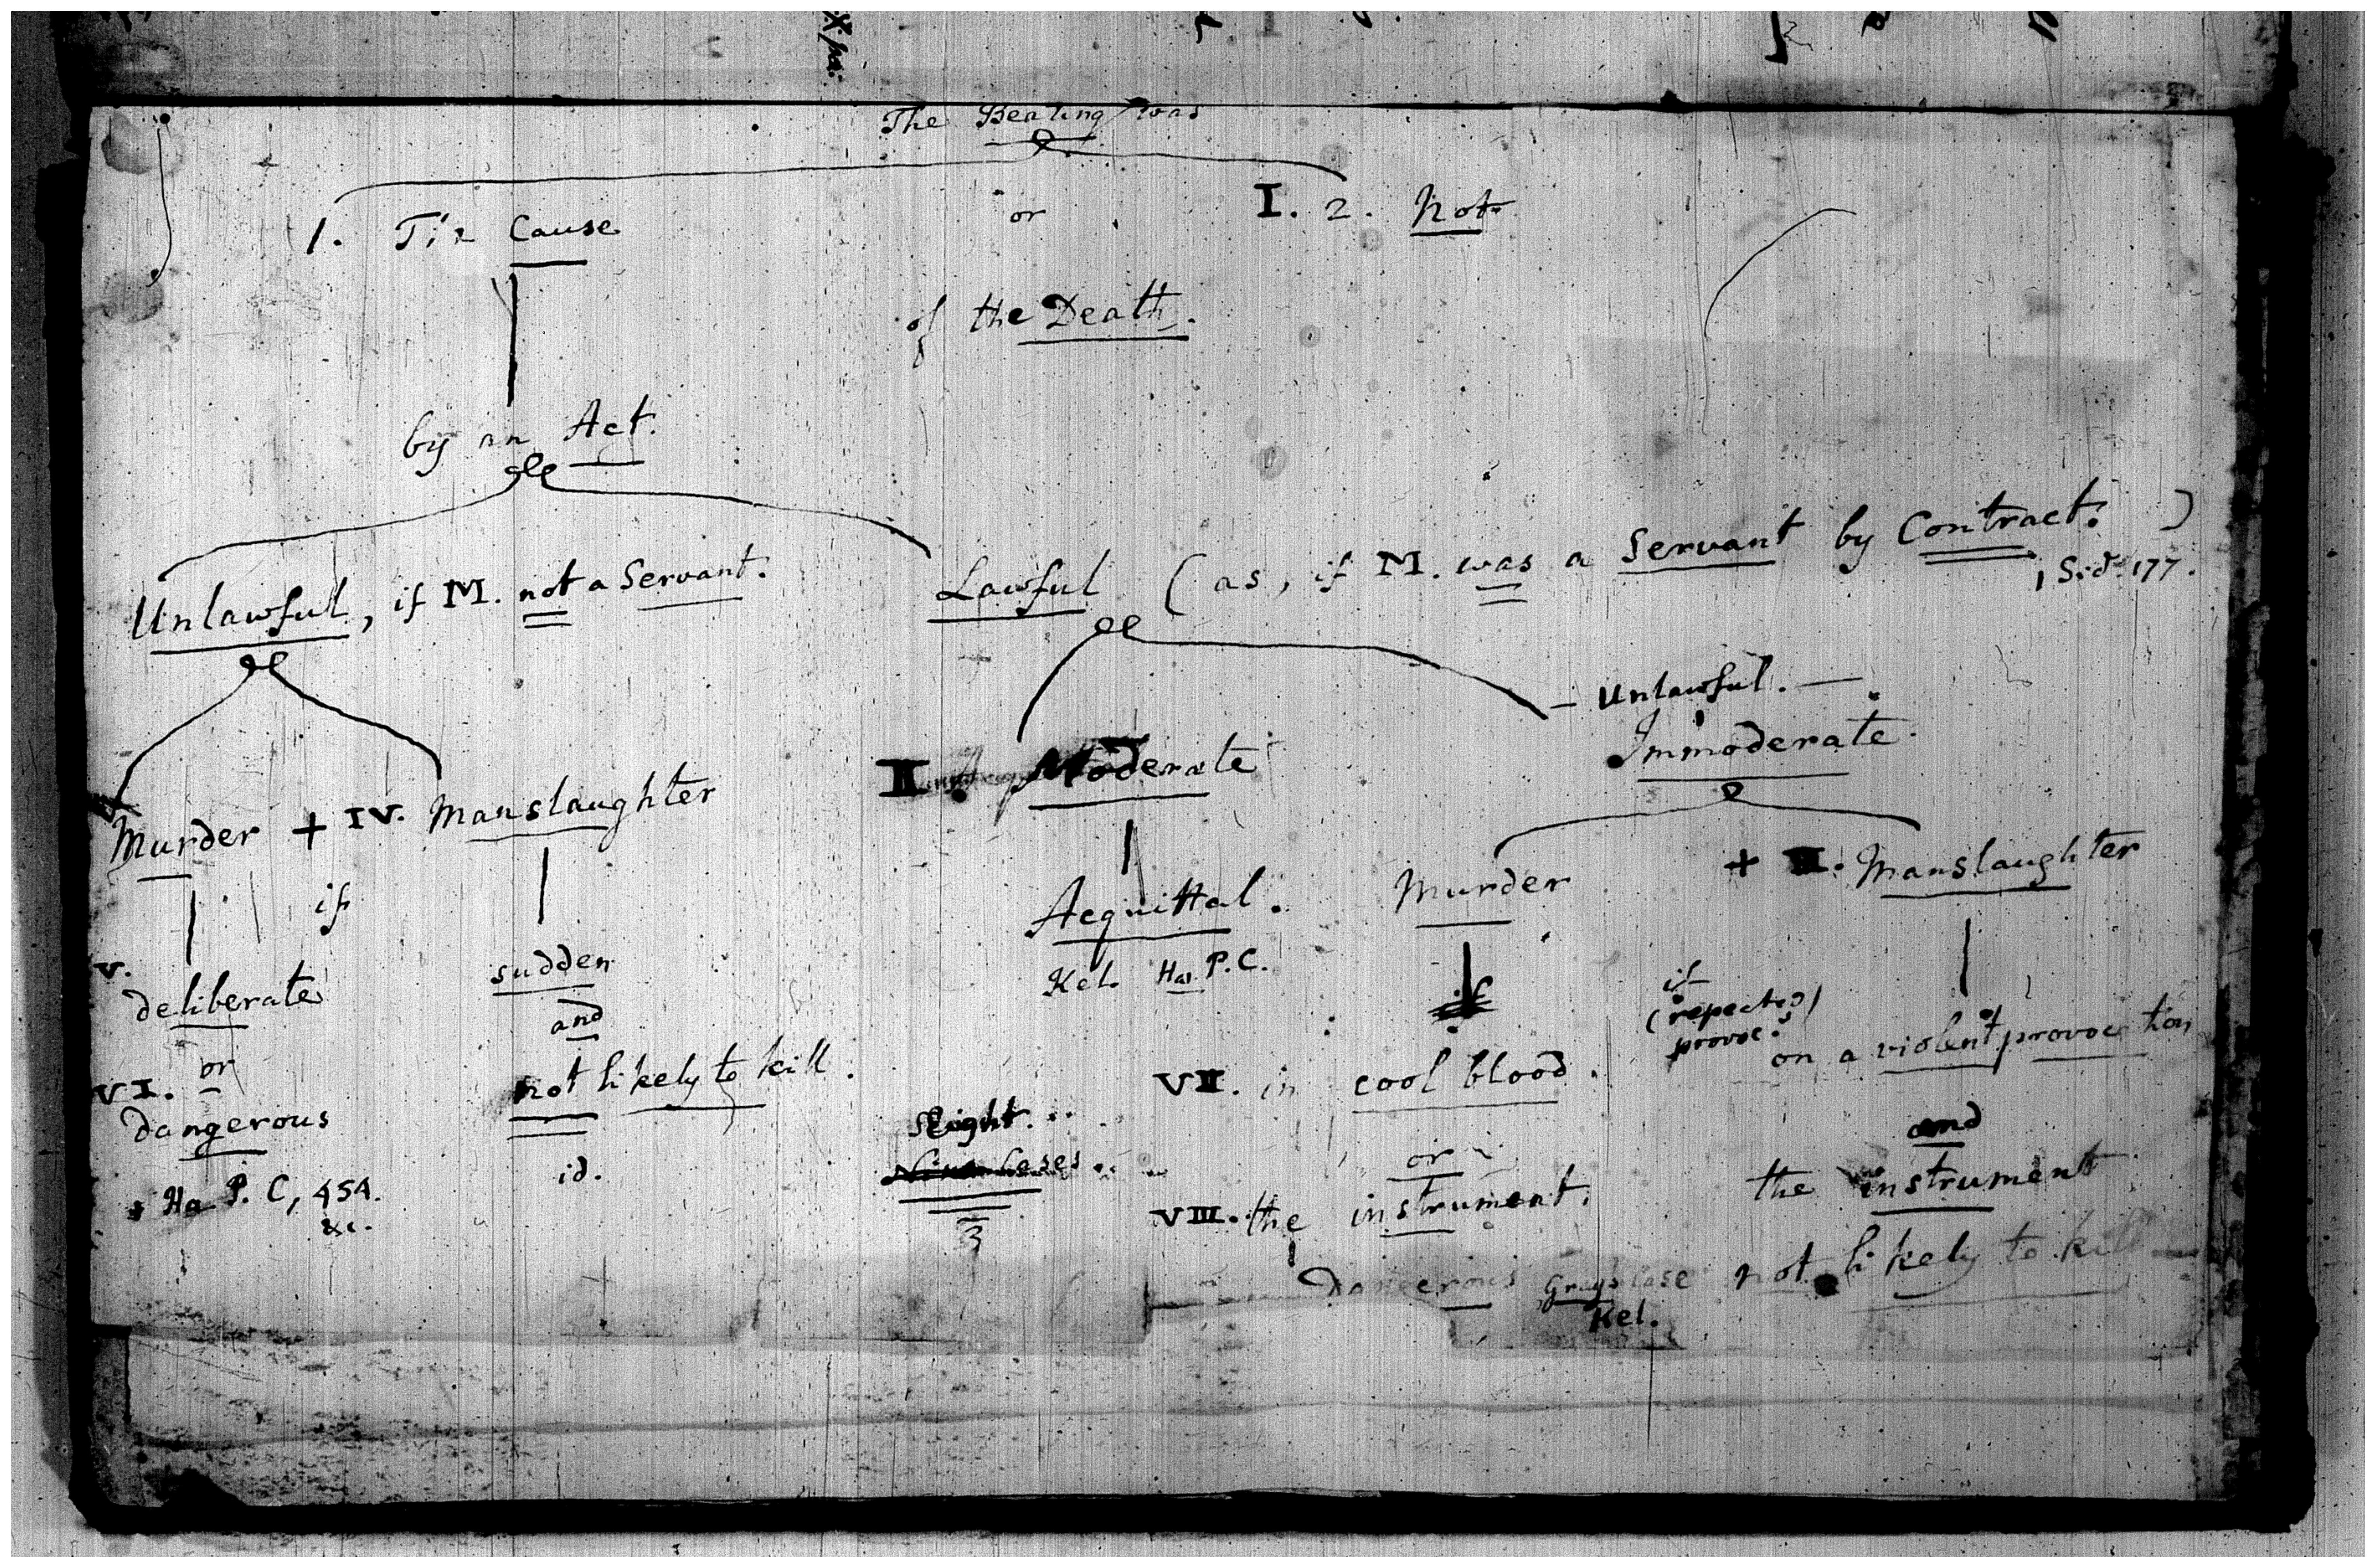 The Beating was
1. The Cause or I. 2. Not
of the Death.
by an Act.
Unlawful, if M. not a Servant.
Lawful (as, if M. was a Servant by Contract. )
1 Sid. 177.
— Unlawful. —
Immoderate.
II. Moderate
Murder + IV. Manslaughter
Acquittal.
Murder + III. Manslaughter
if
Kel. Ha P.C.
V. deliberate
sudden
and
if
(repeated)
provoc.
on a violent provocation
or
VI. dangerous
not likely to kill.
VII. in cool blood.
and
Eight
Cases
or
id.
Ha P. C, 454.
&c.
VIII. the instrument.
the instrument
dangerous Gray's Case
Kel.
not likely to kill